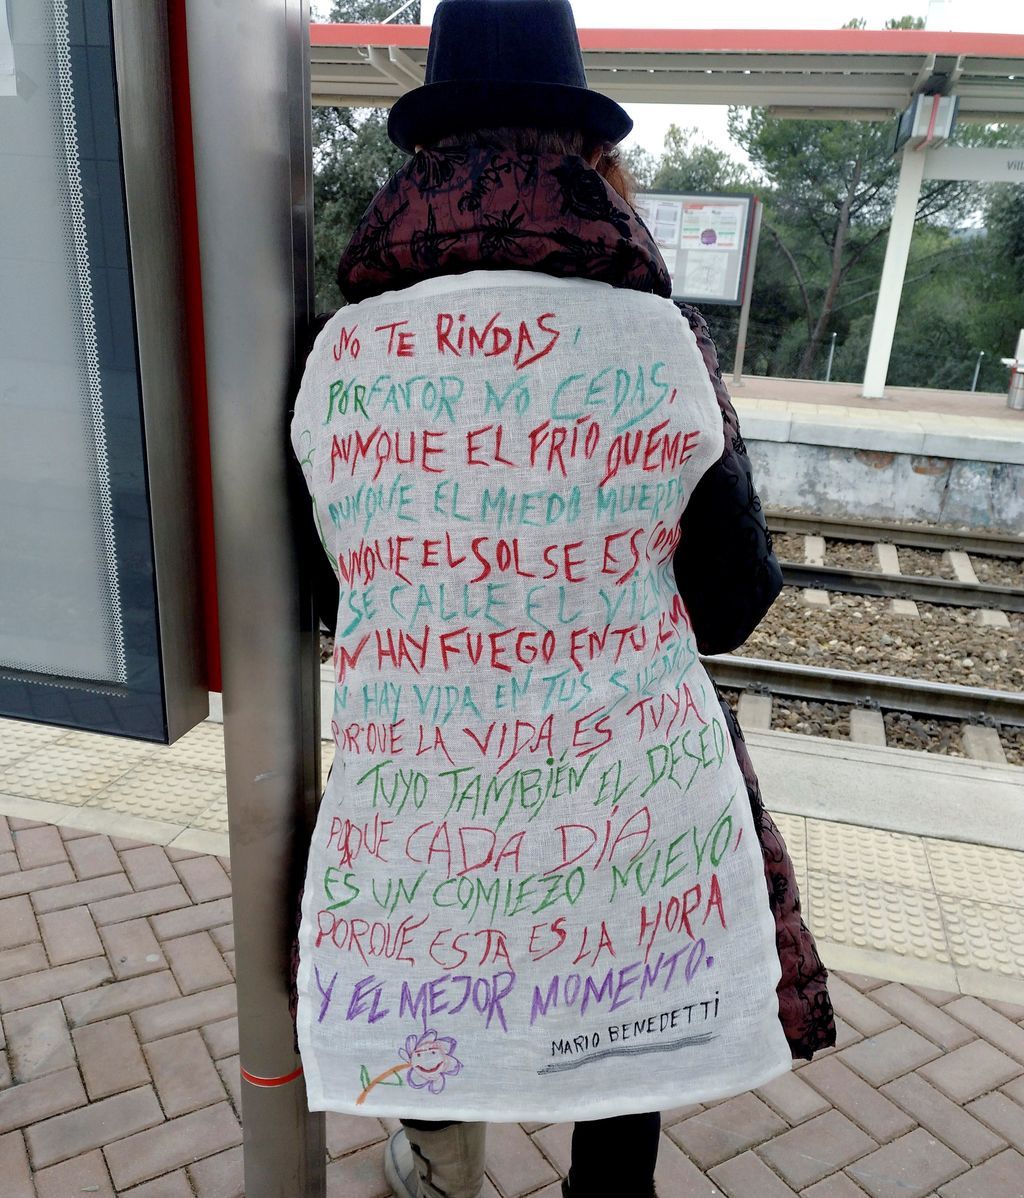 NO TE RINDAS,
POR FAVOR NO CEDAS,
AUNQUE EL FRÍO QUEME
AUNQUE EL MIEDO MUERDA
UNQUE EL SOL SE ESCOND
SE CALLE EL VI
ÚN HAY FUEGO EN TU ALM
N HAY VIDA EN TUS SUEÑOS
PORQUE LA VIDA ES TUYA
TUYO TAMBIÉN EL DESEO
PORQUE CADA DÍA
ES UN COMIEZO NUEVO,
PORQUE ESTA ES LA HORA
Y EL MEJOR MOMENTO.
MARIO BENEDETTI
Vill